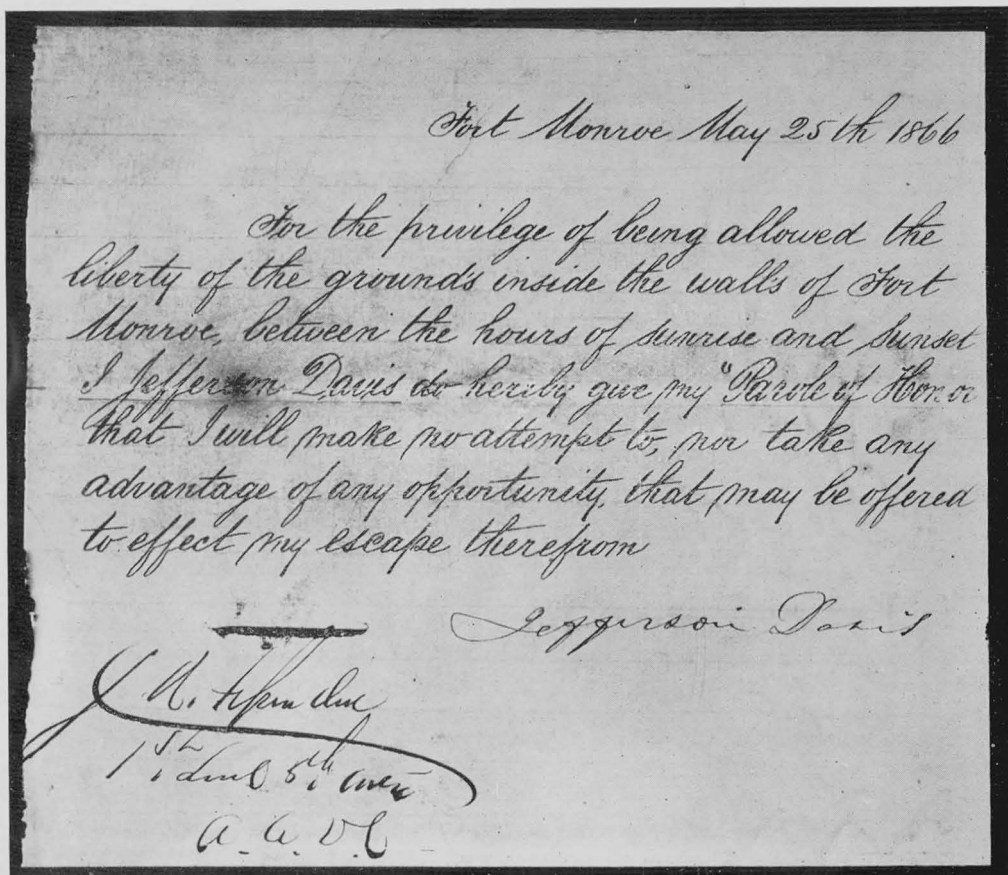 Fort Monroe May 25th 1866
For the privilege of being allowed the
liberty of the grounds inside the walls of Fort
Monroe, between the hours of sunrise and sunset
I Jefferson Davis do hereby give my "Parole of Honor
that I will make no attempt to, nor take any
advantage of any opportunity, that may be offered
to effect my escape therefrom
Jefferson Davis
1st 5th
A. A.